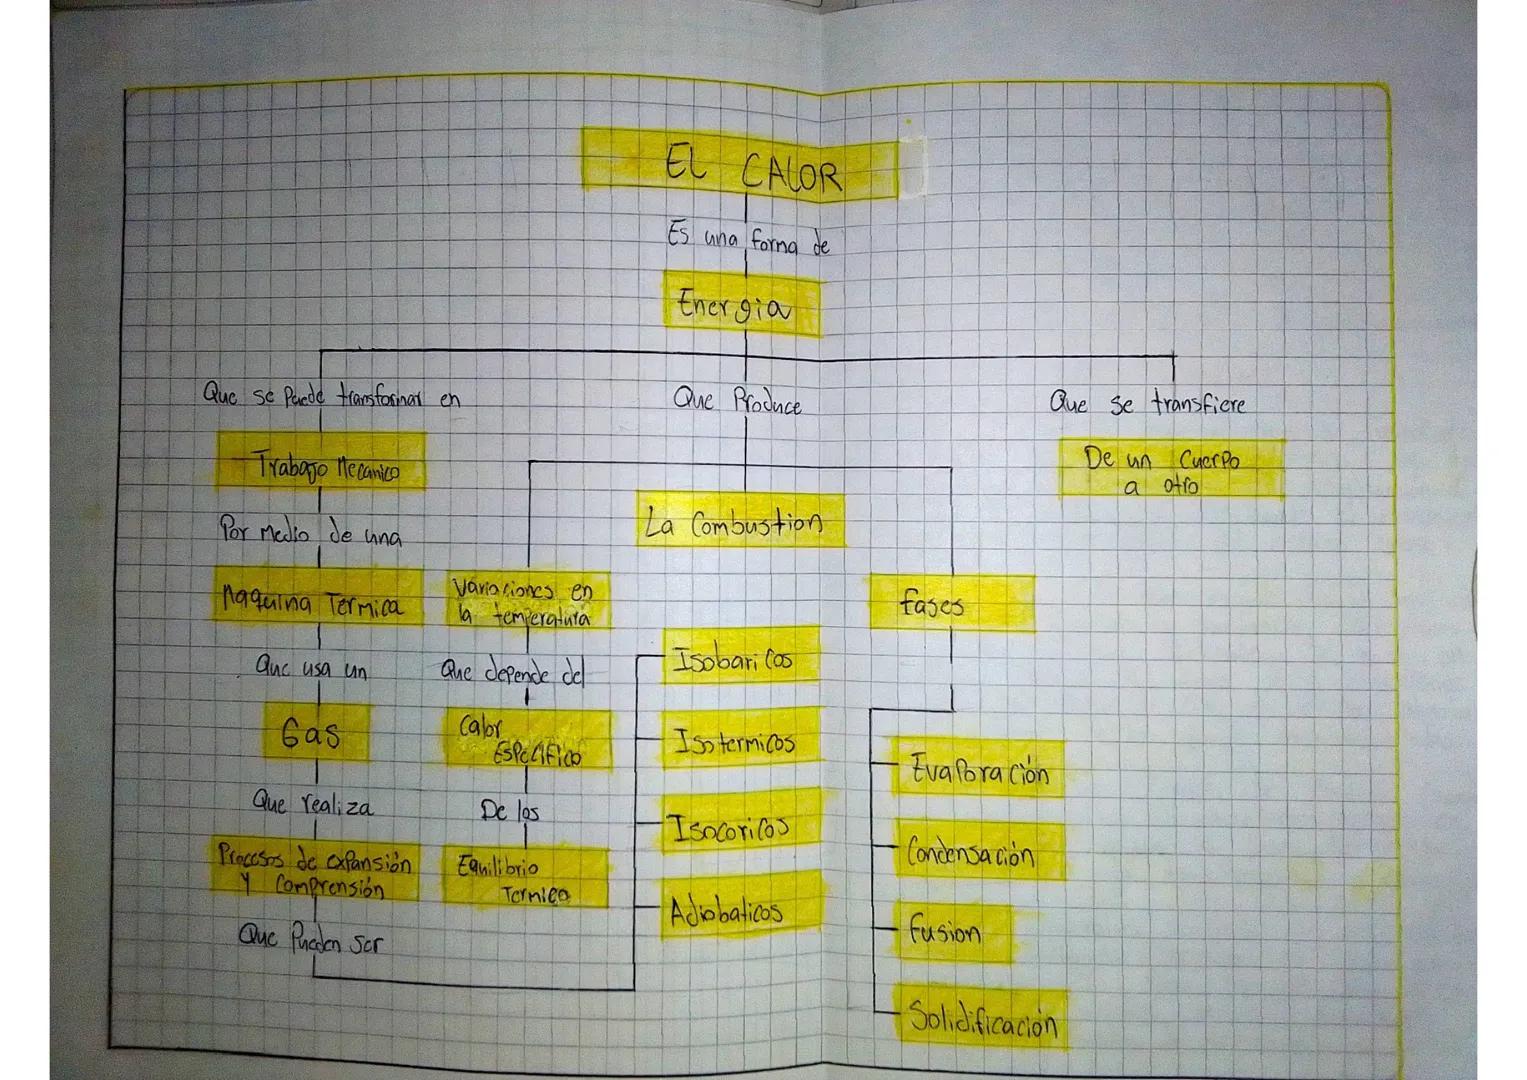 EL CALOR
Es una forma de
Energia
Que se Puede transformar en
Que Produce
Que se transfiere
Trabajo Mecanico
De un Cuerpo
a otro
La Combustion
Por Medio de una
Maquina Termica
Variaciones en
la temperatura
fases
Que usa un
Que depende del
Isobaricos
Gas
Calor
Especifico
Isotermicos
Evaporación
Que realiza
De los
Isocoricos
Condensación
Procesos de expansión
y Comprensión
Equilibrio
Termico
Adiobaticos
fusion
Que Pueden ser
Solidificación